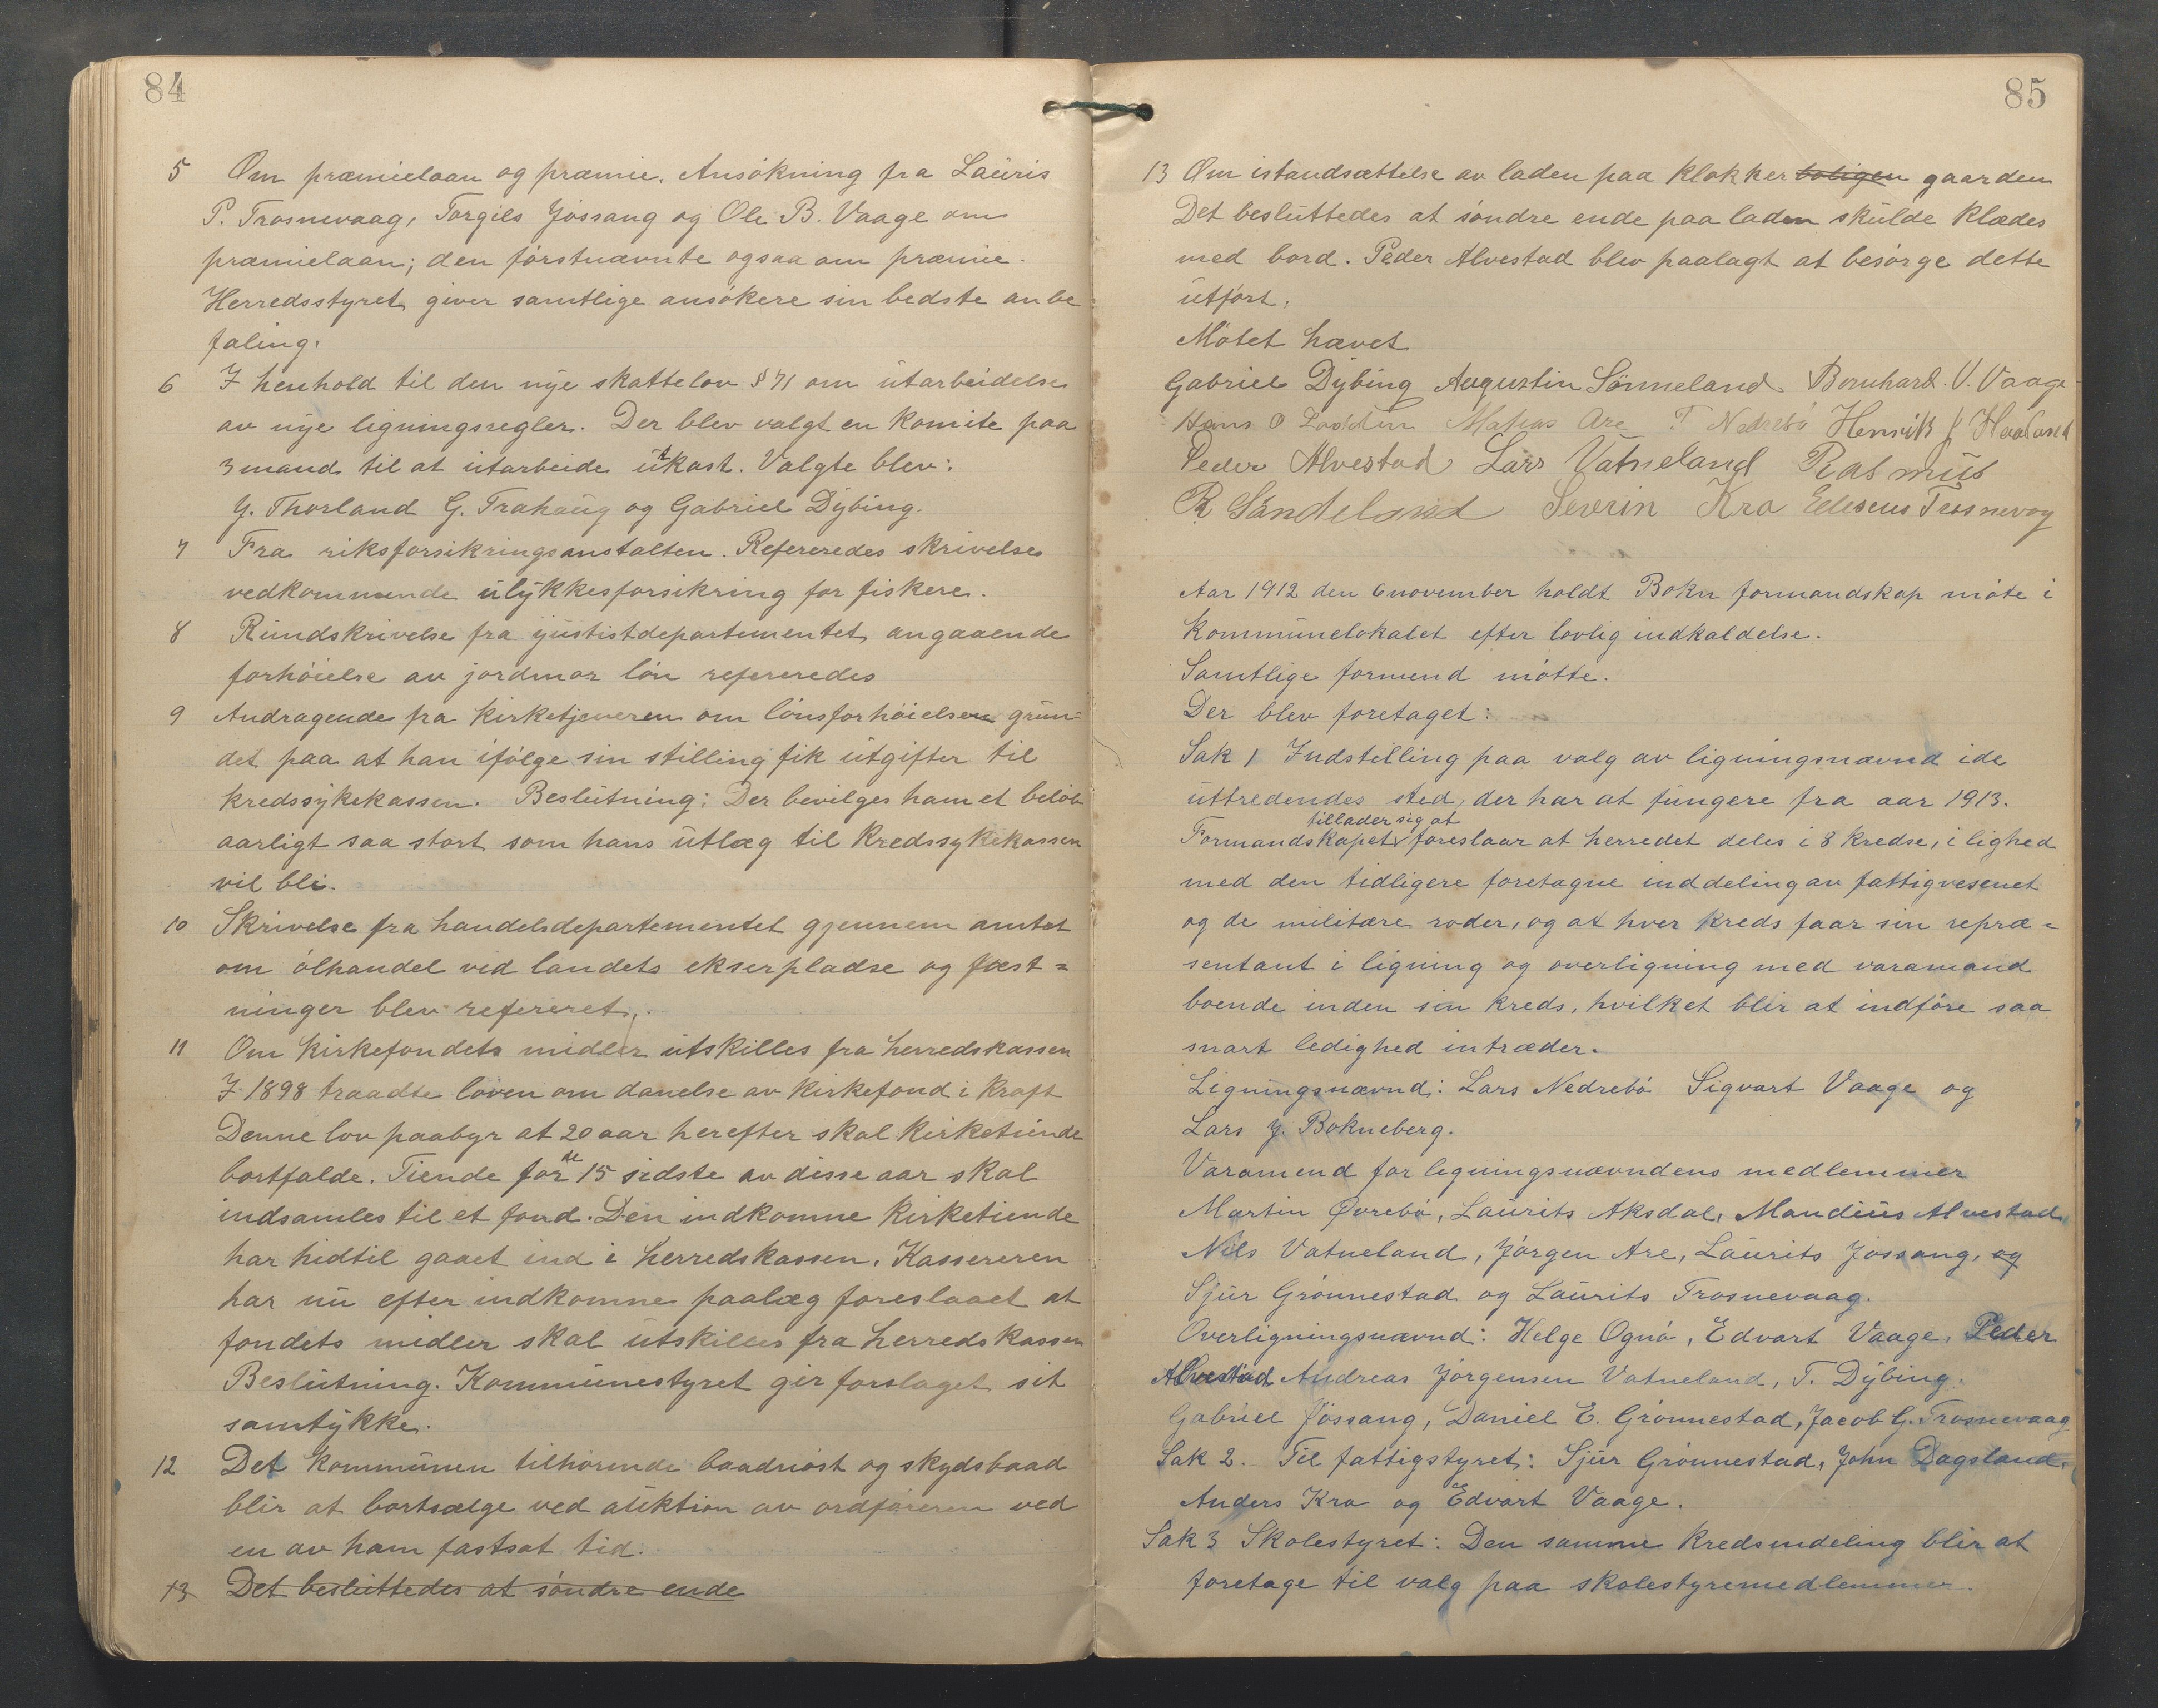 84
5 Om præmielaan og præmie. Ansökning fra Lauris
P. Trosnevaag, Torgils Jössang og Ole B. Vaage om
præmielaan; den förstnævnte ogsaa om præmie.
Herredsstyret giver samtlige ansökere sin bedste anbe
faling.
6 I henhold til den nye skattelov § 71 om utarbeidelse
av nye ligningsregler. Der blev valgt en komite paa
3 mand til at utarbeide utkast. Valgte blev:
J. Thorland G. Trahaug og Gabriel Dybing.
7 Fra riksforsikringsanstalten. Refereredes skrivelse
vedkommende ulykkesforsikring for fiskere.
8 Rundskrivelse fra justistdepartementet angaaende
forhöielse av jordmor lön refereredes
9 Andragende fra kirketjeneren om lönsforhöielsen grun-
det paa at han ifölge sin stilling fik utgifter til
kredssykekassen. Beslutning: Der bevilges ham et belöb
aarligt saa stort som hans utlæg til kredssykekassen
vil bli.
10 Skrivelse fra handelsdepartementet gjennem amtet
om ölhandel ved landets ekserpladse og fæst=
ninger blev refereret.
11 Om kirkefondets midler utskilles fra herredskassen
I 1898 traadte loven om danelse av kirkefond i kraft
Denne lov paabyr at 20 aar herefter skal kirketiende
bortfalde. Tiende for de 15 sidste av disse aar skal
indsamles til et fond. Den indkomne kirketiende
har hidtil gaaet ind i herredskassen. Kassereren
har nu efter indkomne paalæg foreslaaet at
fondets midler skal utskilles fra herredskassen
Beslutning. Kommunestyret gir forslaget sit
samtykke.
12 Det kommunen tilhörende baadnöst og skydsbaad
blir at bortsælge ved auktion av ordföreren ved
en av ham fastsat tid.
13 Det besluttedes at söndre ende
85
13 Om istandsættelse av laden paa klokker boligen gaarden
Det besluttedes at söndre ende paa laden skulde klædes
med bord. Peder Alvestad blev paalagt at besörge dette
utfört.
Mötet hævet
Gabriel Dybing Augustin Sönneland Bernhard. V. Vaage
Hans O Matias Are T Nedrebö Henrik J
Peder Alvestad Lars Vatneland Rasmus
R Sandeland Severin Kro
Aar 1912 den 6 november holdt Bokn formandskap möte i
kommunelokalet efter lovlig indkaldelse.
Samtlige formend mötte.
Der blev foretaget:
Sak 1 Indstilling paa valg av ligningsnævnd i de
uttredendes sted, der har at fungere fra aar 1913.
Formandskapet tillader sig at foreslaar at herredet deles i 8 kredse, i lighed
med den tidligere foretagne inddeling av fattigvesenet
og de militære roder, og at hver kreds faar sin repræ=
sentant i ligning og overligning med varamand
boende inden sin kreds, hvilket blir at indföre saa
snart ledighed intræder.
Ligningsnævnd: Lars Nedrebö Sigvart Vaage og
Lars J. Bokneberg.
Varamend for ligningsnævndens medlemmer
Martin Øvrebö, Laurits Aksdal, Mandius Alvestad,
Nils Vatneland, Jörgen Are, Laurits Jössang, og
Sjur Grönnestad og Laurits Trosnevaag.
Overligningsnævnd: Helge Ognö, Edvart Vaage, Peder
Alvestad Andreas Jörgensen Vatneland, T. Dybing.
Gabriel Jössang, Daniel E. Grönnestad, Jacob G. Trosnevaag
Sak 2. Til fattigstyret: Sjur Grönnestad, John Dagsland,
Anders Kro og Edvart Vaage.
Sak 3 Skolestyret: Den samme kredsindeling blir at
foretage til valg paa skolestyremedlemmer.